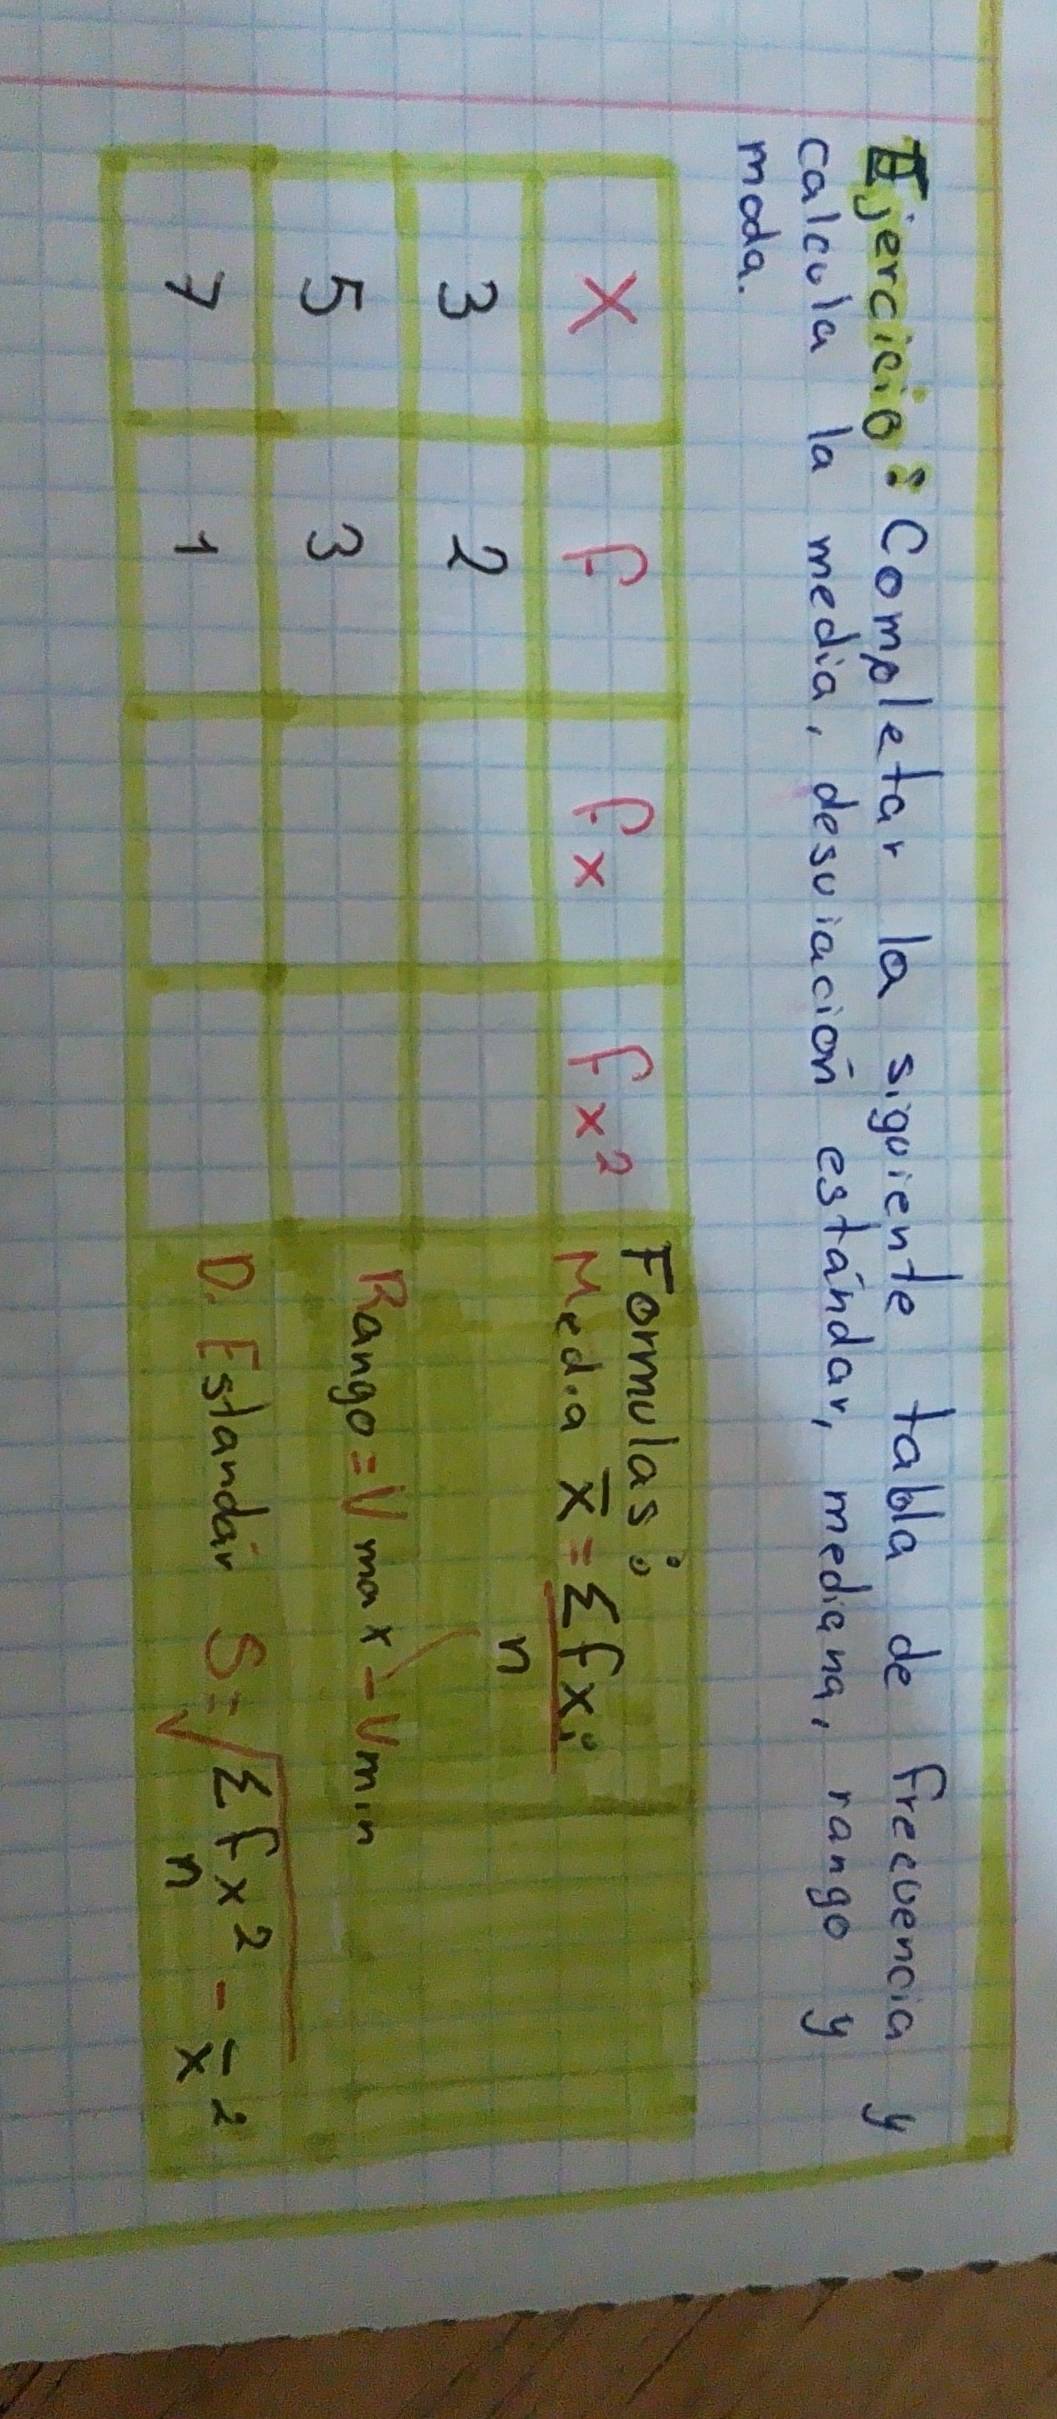 Ejercicio: Completar la siguiente tabla de frecuencia y
calcula la media, desviación estándar, mediana, rango y
moda.
X f fx fx²
3 2
5 3
7 1
Formulas:
Media x̄ = Σfxi
n
Rango = Vmax - Vmin
D. Estandár S = √Σfx² - x̄²
n